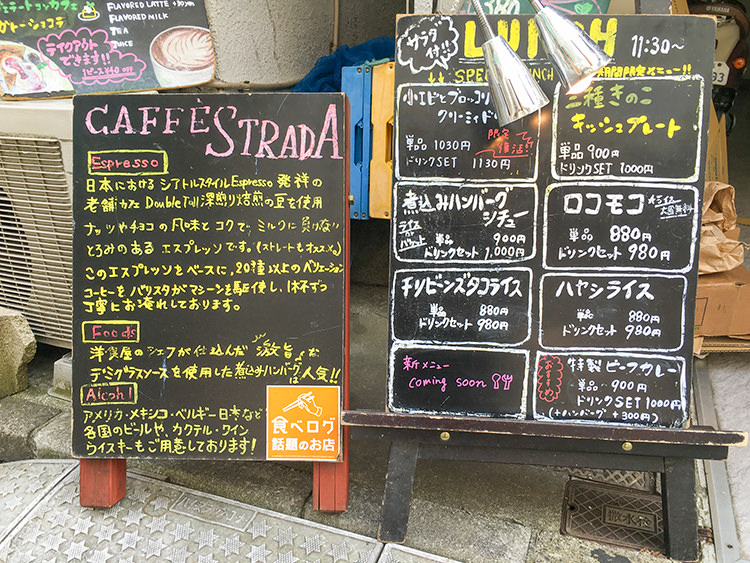 FLAVORED LATTE
FLAVORED MILK
TEA
JUICE
テイクアウト
できます!!
CAFFÈ STRADA
Espresso
日本における シアトルスタイルEspresso 発祥の
老舗カフェ Double Tall 深煎り焙煎の豆を使用
ナッツやチョコの風味とコクで、ミルクに負けない
とろみのある エスプレッソです。
このエスプレッソをベースに、20種以上のバリエーション
コーヒーを バリスタがマシーンを駆使し、1杯ずつ
丁寧にお淹れしております。
Foods
洋食屋のシェフが仕込んだ 激旨
デミグラスソースを使用した煮込みハンバーグは人気!!
Alcohl
アメリカ・メキシコ・ベルギー・日本など
各国のビールや、カクテル・ワイン
ウイスキーもご用意しております!
食べログ
話題のお店
サラダ
付!!
LUNCH 11:30~
小エビとブロッコリ
クリーミィ
単品 1030円
ドリンクSET 1130円
限定
復活!!
三種きのこ
キッシュプレート
単品 900円
ドリンクSET 1000円
煮込みハンバーグ
シチュー
ライス
or
バゲット
単品 900円
ドリンクセット 1,000円
ロコモコ
単品 880円
ドリンクセット 980円
チリビーンズタコライス
単品 880円
ドリンクセット 980円
ハヤシライス
単品 880円
ドリンクセット 980円
新メニュー
Coming soon
おすすめ
特製 ビーフカレー
単品 900円
ドリンクSET 1000円
(+ハンバーグ +300円)